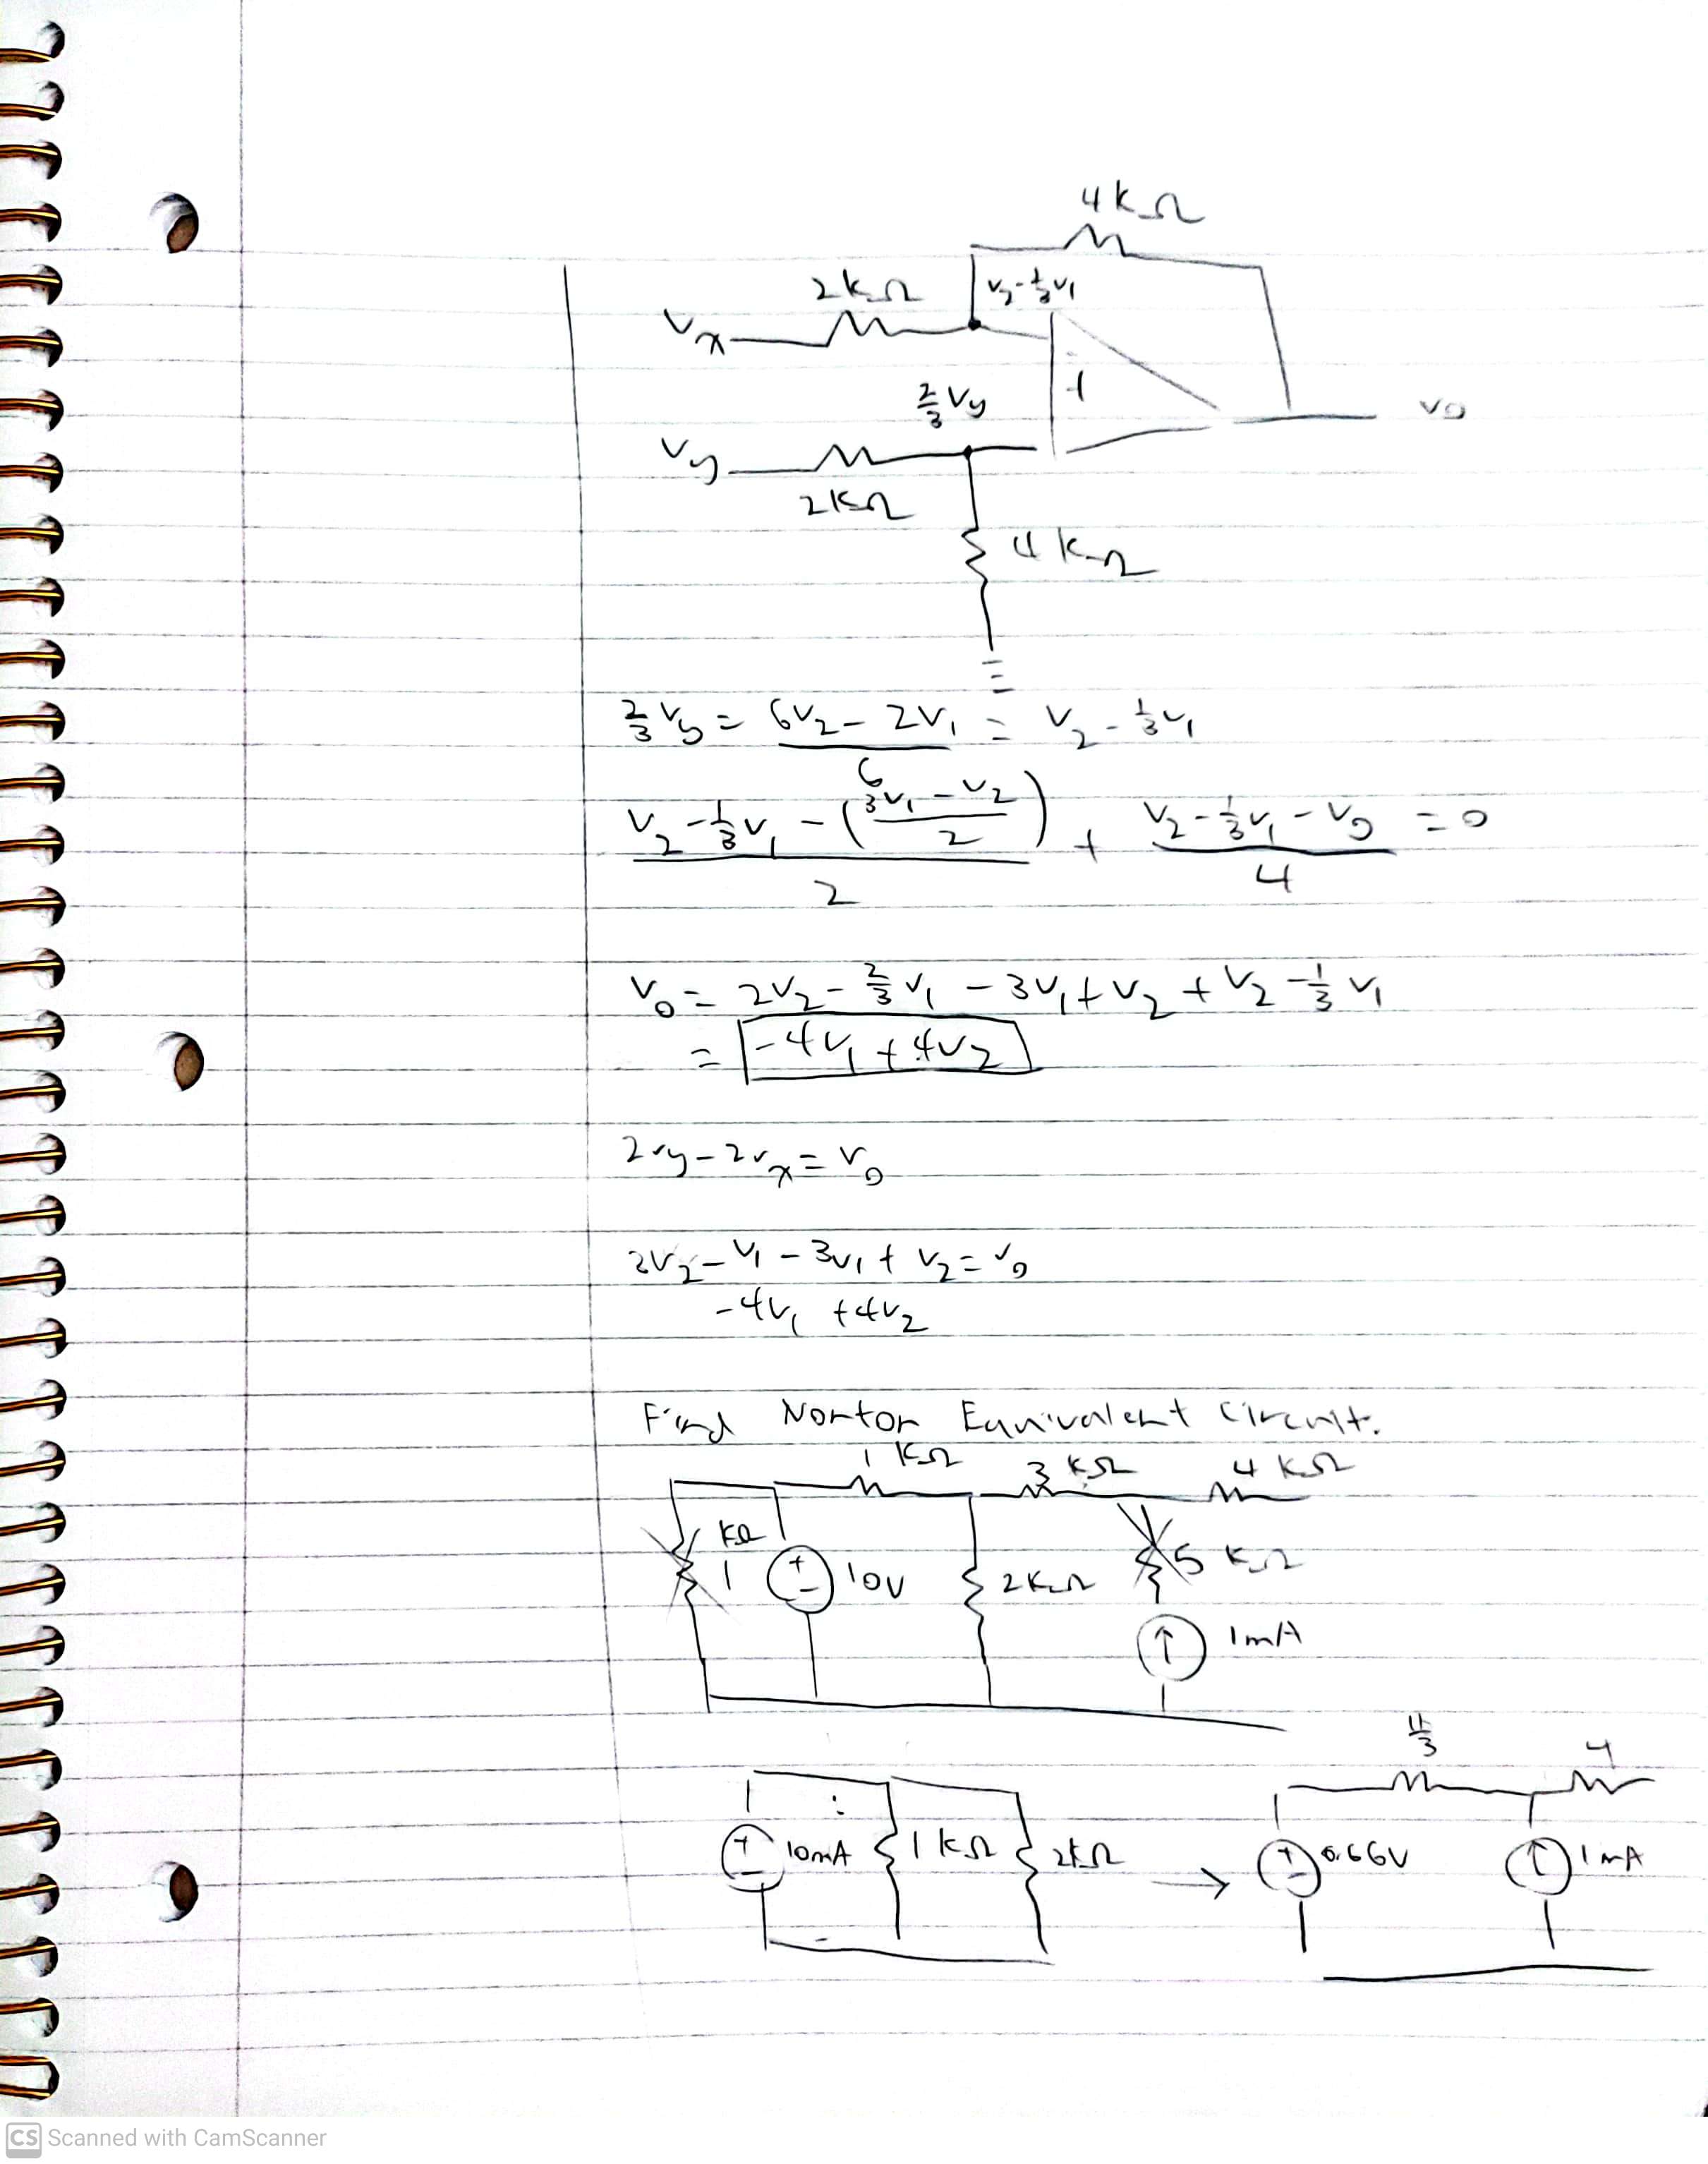 4kΩ
2kΩ
V₂-⅓V₁
Vx
⅔Vy
+
Vo
Vy
2kΩ
4kΩ
⅔Vy = (6V₂ - 2V₁)/6 = V₂ - ⅓V₁
(V₂ - ⅓V₁ - ((3V₁ - V₂)/2))/2 + (V₂ - ⅓V₁ - Vo)/4 = 0
Vo = 2V₂ - ⅔V₁ - 3V₁ + V₂ + V₂ - ⅓V₁
= -4V₁ + 4V₂
2vy - 2vx = vo
2V₂ - V₁ - 3V₁ + V₂ = Vo
-4V₁ + 4V₂
Find Norton Equivalent Circuit.
1 kΩ 3 kΩ 4 kΩ
kΩ
1 + - 10V 2kΩ 5 kΩ
↑ 1mA
11/3 4
+ - 10mA 1kΩ 2kΩ → + - 0.66V ↑ 1mA
CS Scanned with CamScanner